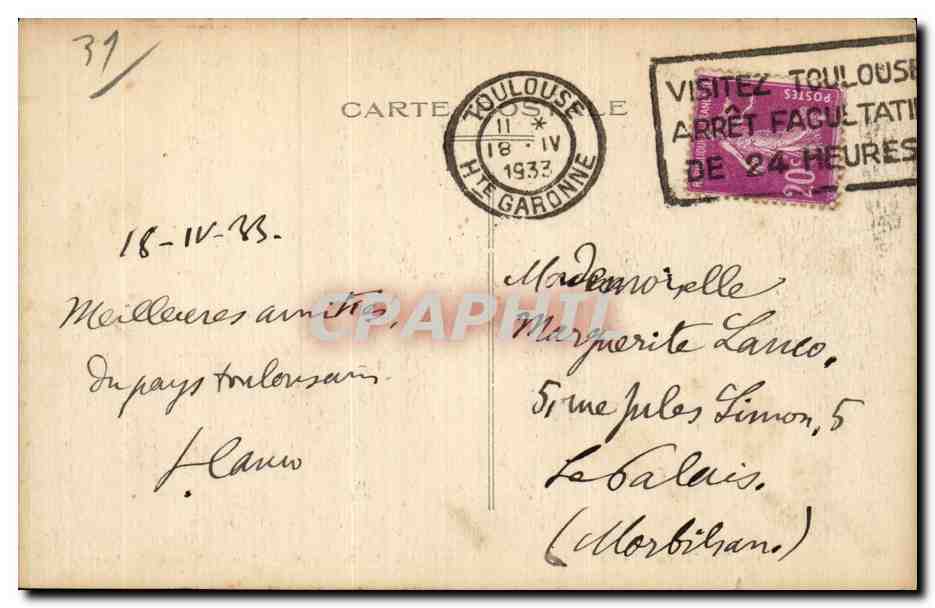 31
CARTE POSTALE
TOULOUSE
11 *
18 · IV
1933
HTE GARONNE
VISITEZ TOULOUSE
ARRÊT FACULTATI
DE 24 HEURES
POSTES
20c
18-IV-33.
Meilleures amitiés,
du pays toulousain.
J. Lanco
Mademoiselle
Marguerite Lanco,
5, rue Jules Simon, 5
Le Palais.
(Morbihan.)
CPAPHIL